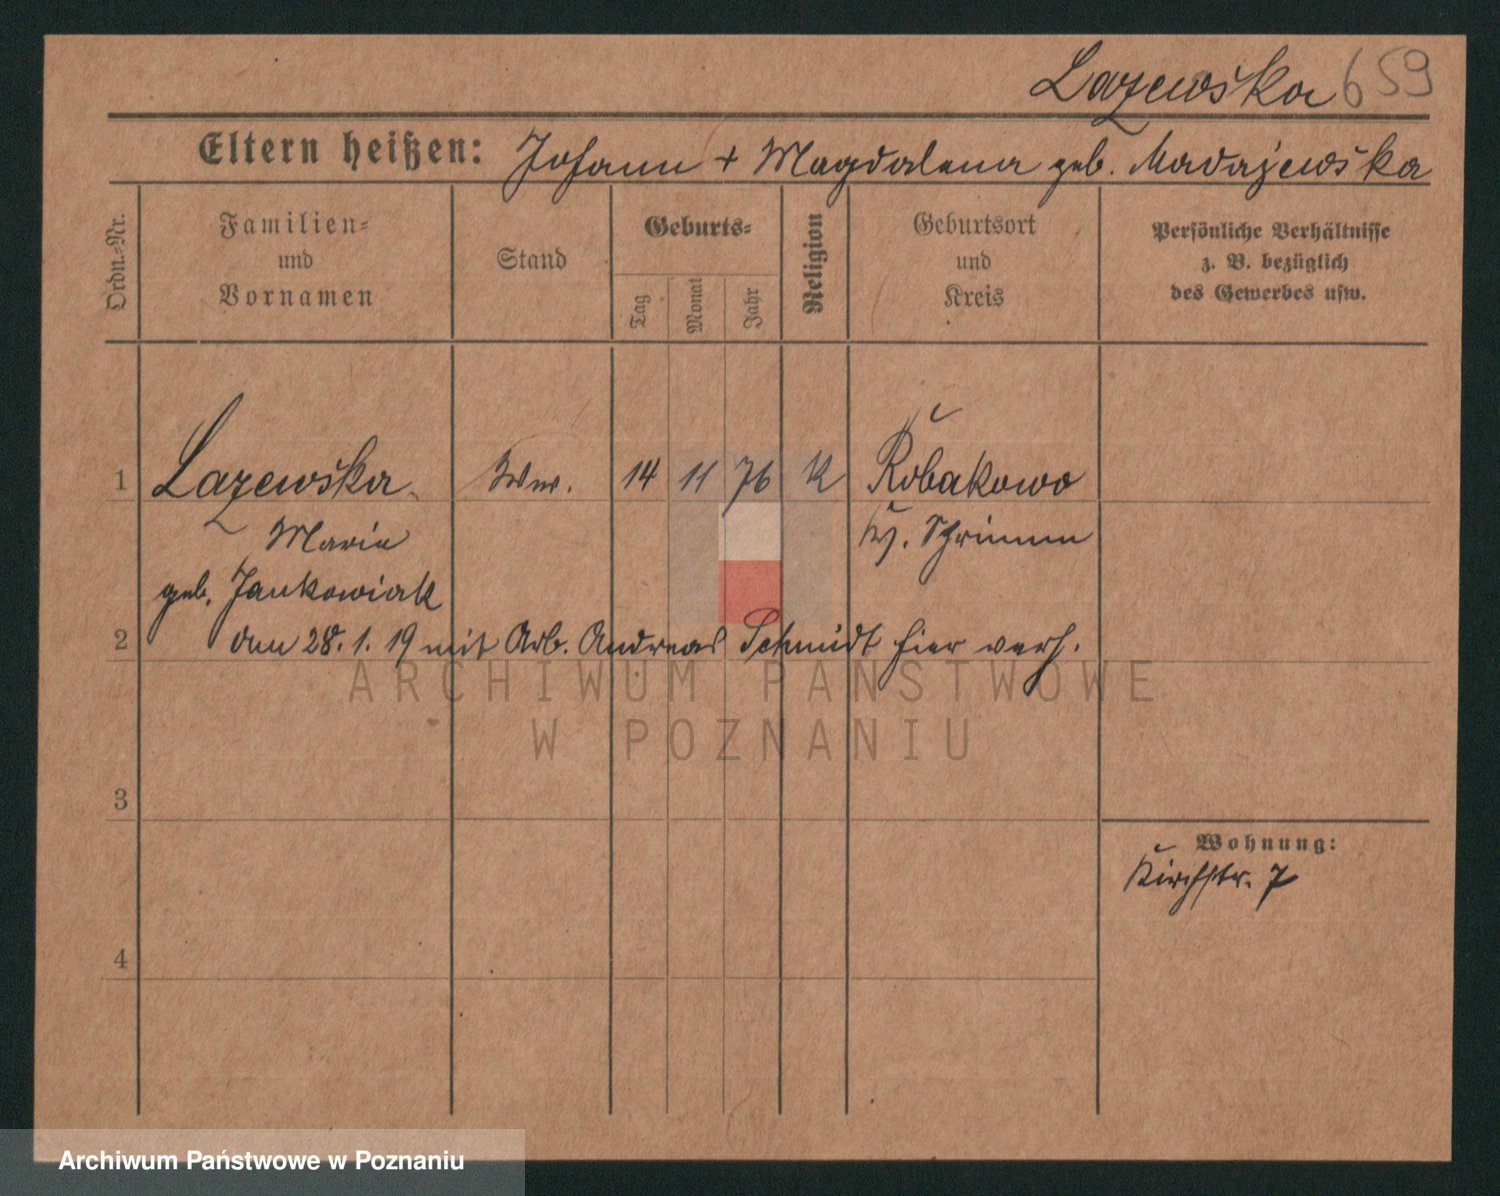 Lazewska 659
Eltern heißen: Johann + Magdalena geb. Madajewska
Ordn.-Nr.
Familien-
und
Vornamen
Stand
Geburts-
Tag
Monat
Jahr
Religion
Geburtsort
und
Kreis
Persönliche Verhältnisse
z. B. bezüglich
des Gewerbes usw.
1 Lazewska Ww. 14 11 76 K Robakowo
Maria Kr. Schrimm
geb. Jankowiak
2 den 28.1.19 mit Arb. Andreas Schmidt hier verh.
ARCHIWUM PAŃSTWOWE
W POZNANIU
3
Wohnung:
Kirchstr. 7
4
Archiwum Państwowe w Poznaniu